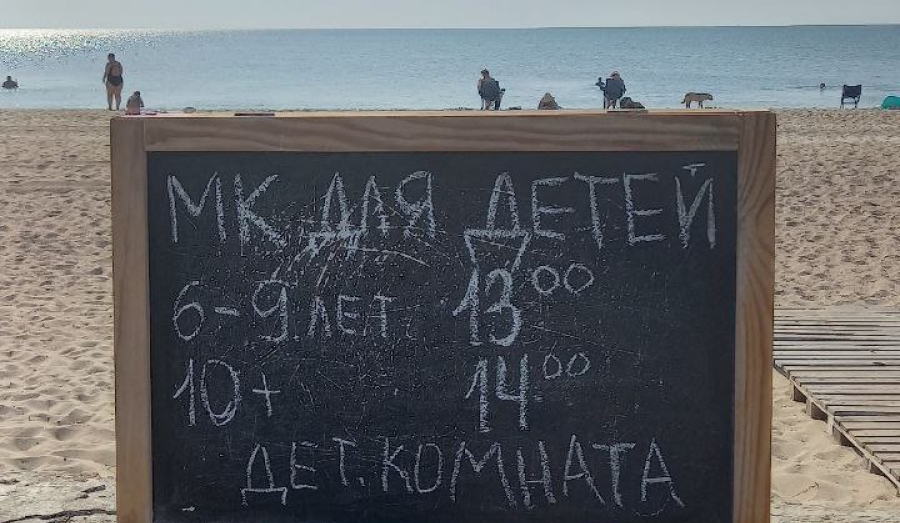 МК ДЛЯ ДЕТЕЙ
6-9 ЛЕТ 13⁰⁰
10+ 14⁰⁰
ДЕТ. КОМНАТА